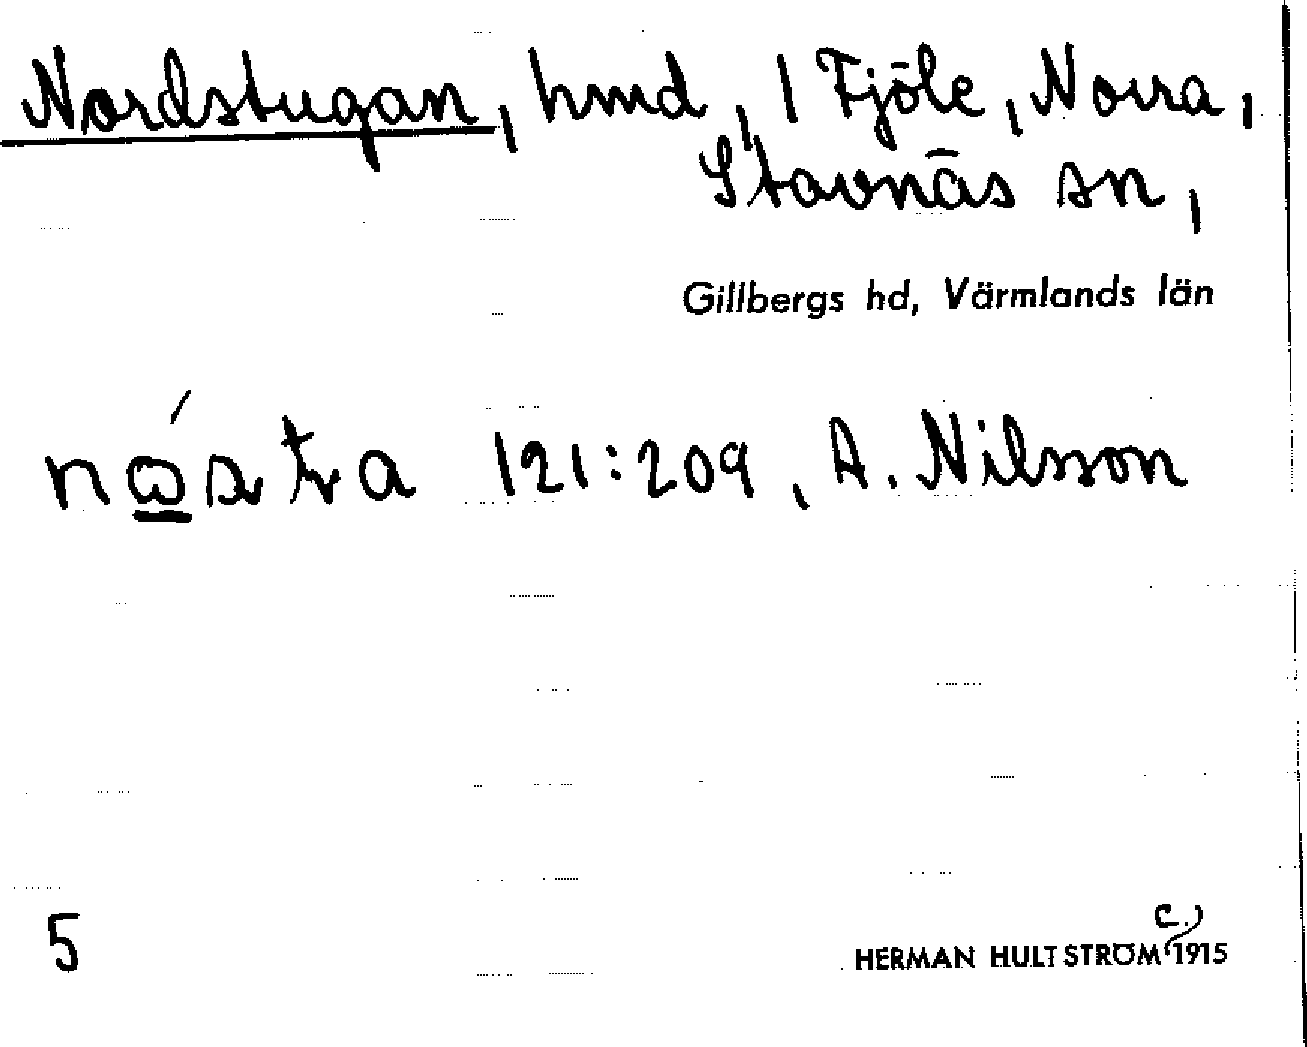 Nordstugan, hmd, 1 Fjöle, Norra,
Stavnäs sn,
Gillbergs hd, Värmlands län
121:209, A. Nilsson
5
HERMAN HULTSTRÖM c.) 1915